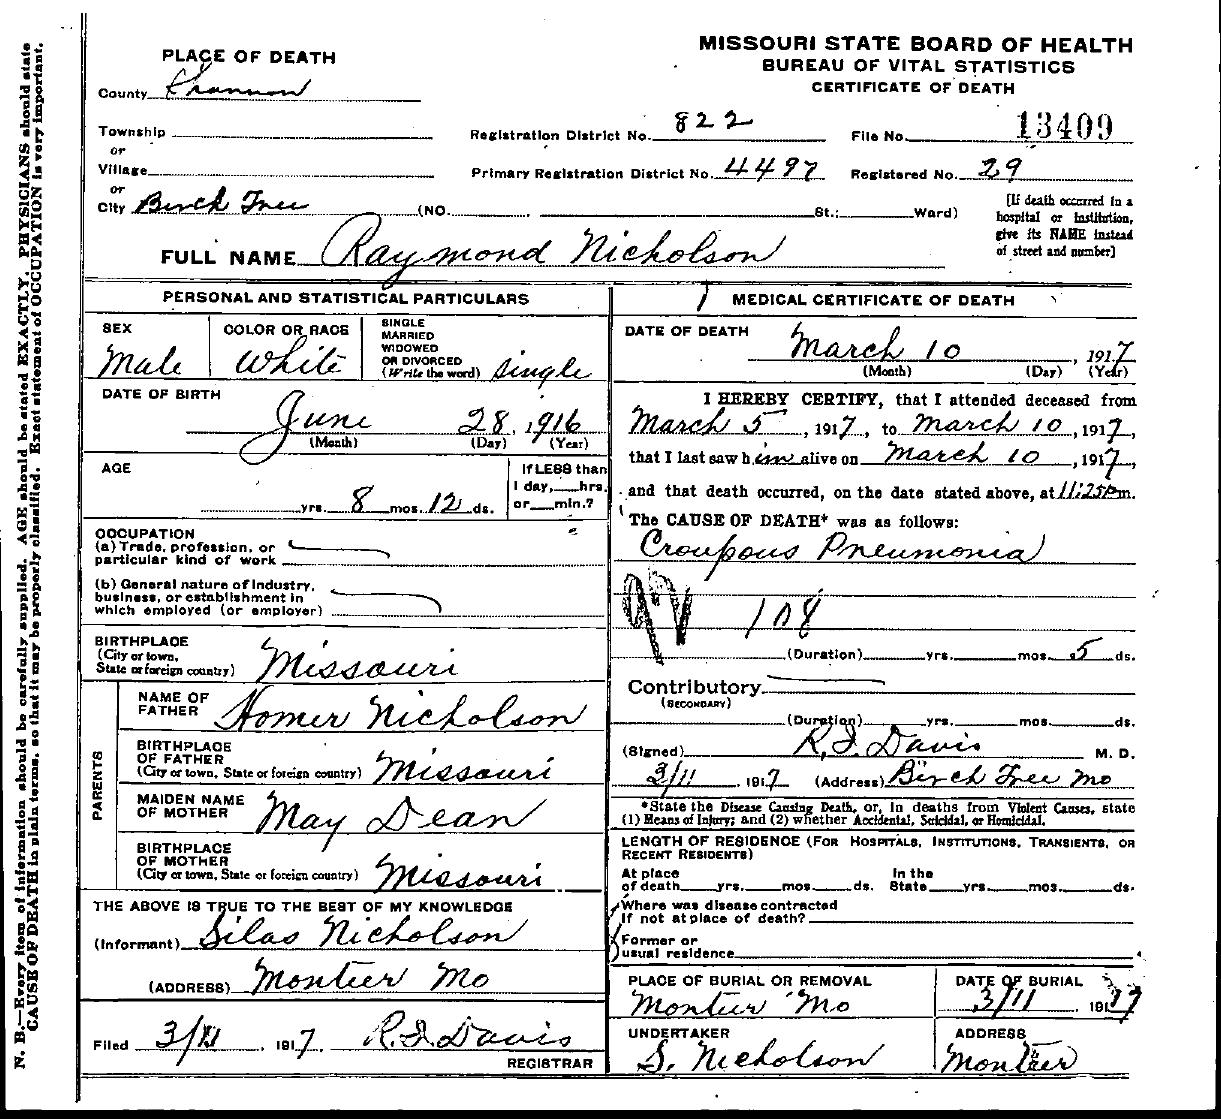 N. B.—Every item of information should be carefully supplied. AGE should be stated EXACTLY. PHYSICIANS should state
CAUSE OF DEATH in plain terms, so that it may be properly classified. Exact statement of OCCUPATION is very important.
MISSOURI STATE BOARD OF HEALTH
BUREAU OF VITAL STATISTICS
CERTIFICATE OF DEATH
PLACE OF DEATH
County Shannon
Township
or
Village
or
City Birch Tree (NO. St.; Ward)
Registration District No. 822
File No. 13409
Primary Registration District No. 4497
Registered No. 29
[If death occurred in a
hospital or institution,
give its NAME instead
of street and number]
FULL NAME Raymond Nicholson
PERSONAL AND STATISTICAL PARTICULARS
SEX
Male
COLOR OR RACE
White
SINGLE
MARRIED
WIDOWED
OR DIVORCED
(Write the word) Single
DATE OF BIRTH
June 28, 1916
(Month) (Day) (Year)
AGE
yrs. 8 mos. 12 ds.
If LESS than
1 day, hrs.
or min.?
OCCUPATION
(a) Trade, profession, or
particular kind of work
(b) General nature of industry,
business, or establishment in
which employed (or employer)
BIRTHPLACE
(City or town,
State or foreign country) Missouri
PARENTS
NAME OF
FATHER Homer Nicholson
BIRTHPLACE
OF FATHER
(City or town, State or foreign country) Missouri
MAIDEN NAME
OF MOTHER May Dean
BIRTHPLACE
OF MOTHER
(City or town, State or foreign country) Missouri
THE ABOVE IS TRUE TO THE BEST OF MY KNOWLEDGE
(Informant) Silas Nicholson
(ADDRESS) Montier Mo
Filed 3/11, 1917 R.I. Davis
REGISTRAR
MEDICAL CERTIFICATE OF DEATH
DATE OF DEATH
March 10, 1917
(Month) (Day) (Year)
I HEREBY CERTIFY, that I attended deceased from
March 5, 1917, to March 10, 1917,
that I last saw him alive on March 10, 1917,
and that death occurred, on the date stated above, at 11:25 Pm.
The CAUSE OF DEATH* was as follows:
Croupous Pneumonia
92 108
(Duration) yrs. mos. 5 ds.
Contributory
(SECONDARY)
(Duration) yrs. mos. ds.
(Signed) R.I. Davis M. D.
3/11 1917 (Address) Birch Tree Mo
*State the Disease Causing Death, or, in deaths from Violent Causes, state
(1) Means of Injury; and (2) whether Accidental, Suicidal, or Homicidal.
LENGTH OF RESIDENCE (FOR HOSPITALS, INSTITUTIONS, TRANSIENTS, OR
RECENT RESIDENTS)
At place
of death yrs. mos. ds.
In the
State yrs. mos. ds.
Where was disease contracted
If not at place of death?
Former or
usual residence
PLACE OF BURIAL OR REMOVAL
Montier Mo
DATE OF BURIAL
3/11 1917
UNDERTAKER
S. Nicholson
ADDRESS
Montier